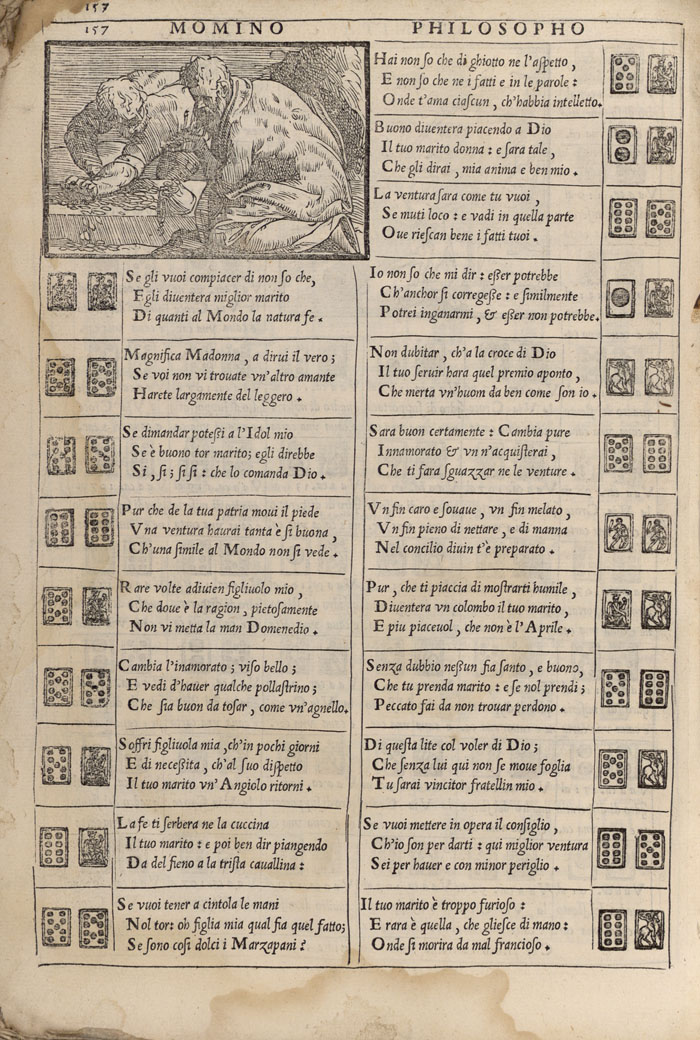 157
157 MOMINO PHILOSOPHO
Se gli vuoi compiacer di non so che,
Egli diuentera miglior marito
Di quanti al Mondo la natura fe.
Magnifica Madonna, a dirui il vero;
Se voi non vi trouate vn'altro amante
Harete largamente del leggero.
Se dimandar poteſsi a l'Idol mio
Se è buono tor marito; egli direbbe
Si, ſi; ſi ſi: che lo comanda Dio.
Pur che de la tua patria moui il piede
Vna ventura haurai tanta è ſi buona,
Ch'una ſimile al Mondo non ſi vede.
Rare volte adiuien figliuolo mio,
Che doue è la ragion, pietoſamente
Non vi metta la man Domenedio.
Cambia l'inamorato; viſo bello;
E vedi d'hauer qualche pollaſtrino;
Che ſia buon da toſar, come vn'agnello.
Soffri figliuola mia, ch'in pochi giorni
E di neceſsita, ch'al ſuo diſpetto
Il tuo marito vn'Angiolo ritorni.
La fe ti ſerbera ne la cuccina
Il tuo marito: e poi ben dir piangendo
Da del fieno a la triſta cauallina:
Se vuoi tener a cintola le mani
Nol tor: oh figlia mia qual fia quel fatto;
Se ſono coſi dolci i Marzapani?
Hai non ſo che di ghiotto ne l'aſpetto,
E non ſo che ne i fatti e in le parole:
Onde t'ama ciaſcun, ch'habbia intelletto.
Buono diuentera piacendo a Dio
Il tuo marito donna: e ſara tale,
Che gli dirai, mia anima e ben mio.
La ventura ſara come tu vuoi,
Se muti loco: e vadi in quella parte
Oue rieſcan bene i fatti tuoi.
Io non ſo che mi dir: eſſer potrebbe
Ch'anchor ſi corregeſſe: e ſimilmente
Potrei inganarmi, & eſſer non potrebbe.
Non dubitar, ch'a la croce di Dio
Il tuo ſeruir hara quel premio aponto,
Che merta vn'huom da ben come ſon io.
Sara buon certamente: Cambia pure
Innamorato & vn n'acquiſterai,
Che ti fara ſguazzar ne le venture.
Vn fin caro e ſouaue, vn fin melato,
Vn fin pieno di nettare, e di manna
Nel concilio diuin t'è preparato.
Pur, che ti piaccia di moſtrarti humile,
Diuentera vn colombo il tuo marito,
E piu piaceuol, che non è l'Aprile.
Senza dubbio neſſun fia ſanto, e buono,
Che tu prenda marito: e ſe nol prendi;
Peccato fai da non trouar perdono.
Di queſta lite col voler di Dio;
Che ſenza lui qui non ſe moue foglia
Tu ſarai vincitor fratellin mio.
Se vuoi mettere in opera il conſiglio,
Ch'io ſon per darti: qui miglior ventura
Sei per hauer e con minor periglio.
Il tuo marito è troppo furioſo:
E rara è quella, che glieſce di mano:
Onde ſi morira da mal francioſo.